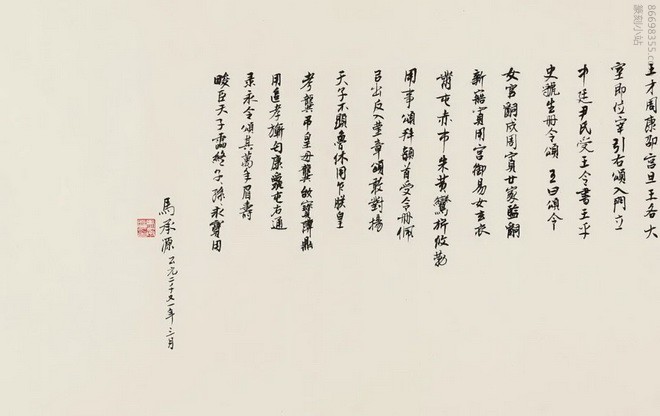 王才周康卲宮旦王各大
室即位宰引右頌入門立
中廷尹氏受王令書王乎
史虢生冊令頌王曰頌令
女官嗣成周賈廿家監嗣
新寤賈用宮御易女玄衣
黹屯赤巿朱黃鑾旂攸勒
用事頌拜稽首受令冊佩
㠯出反入堇章頌敢對揚
天子不顯魯休用乍朕皇
考龔弔皇母龔始寶尊鼎
用追孝旂匄康屯右通
彔永令頌其萬年眉壽
畯臣天子霝終子孫永寶用
馬承源 公元二千又一年三月
篆刻小站
86698355.com